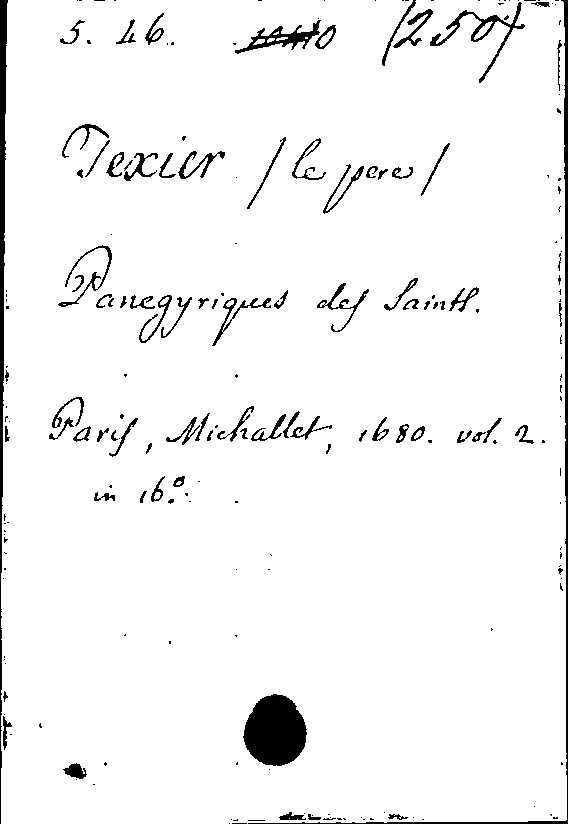 5. 46. (250)
Texier / le pere /
Panegyriques des Saints.
Paris, Michallet, 1680. vol. 2.
in 16º.